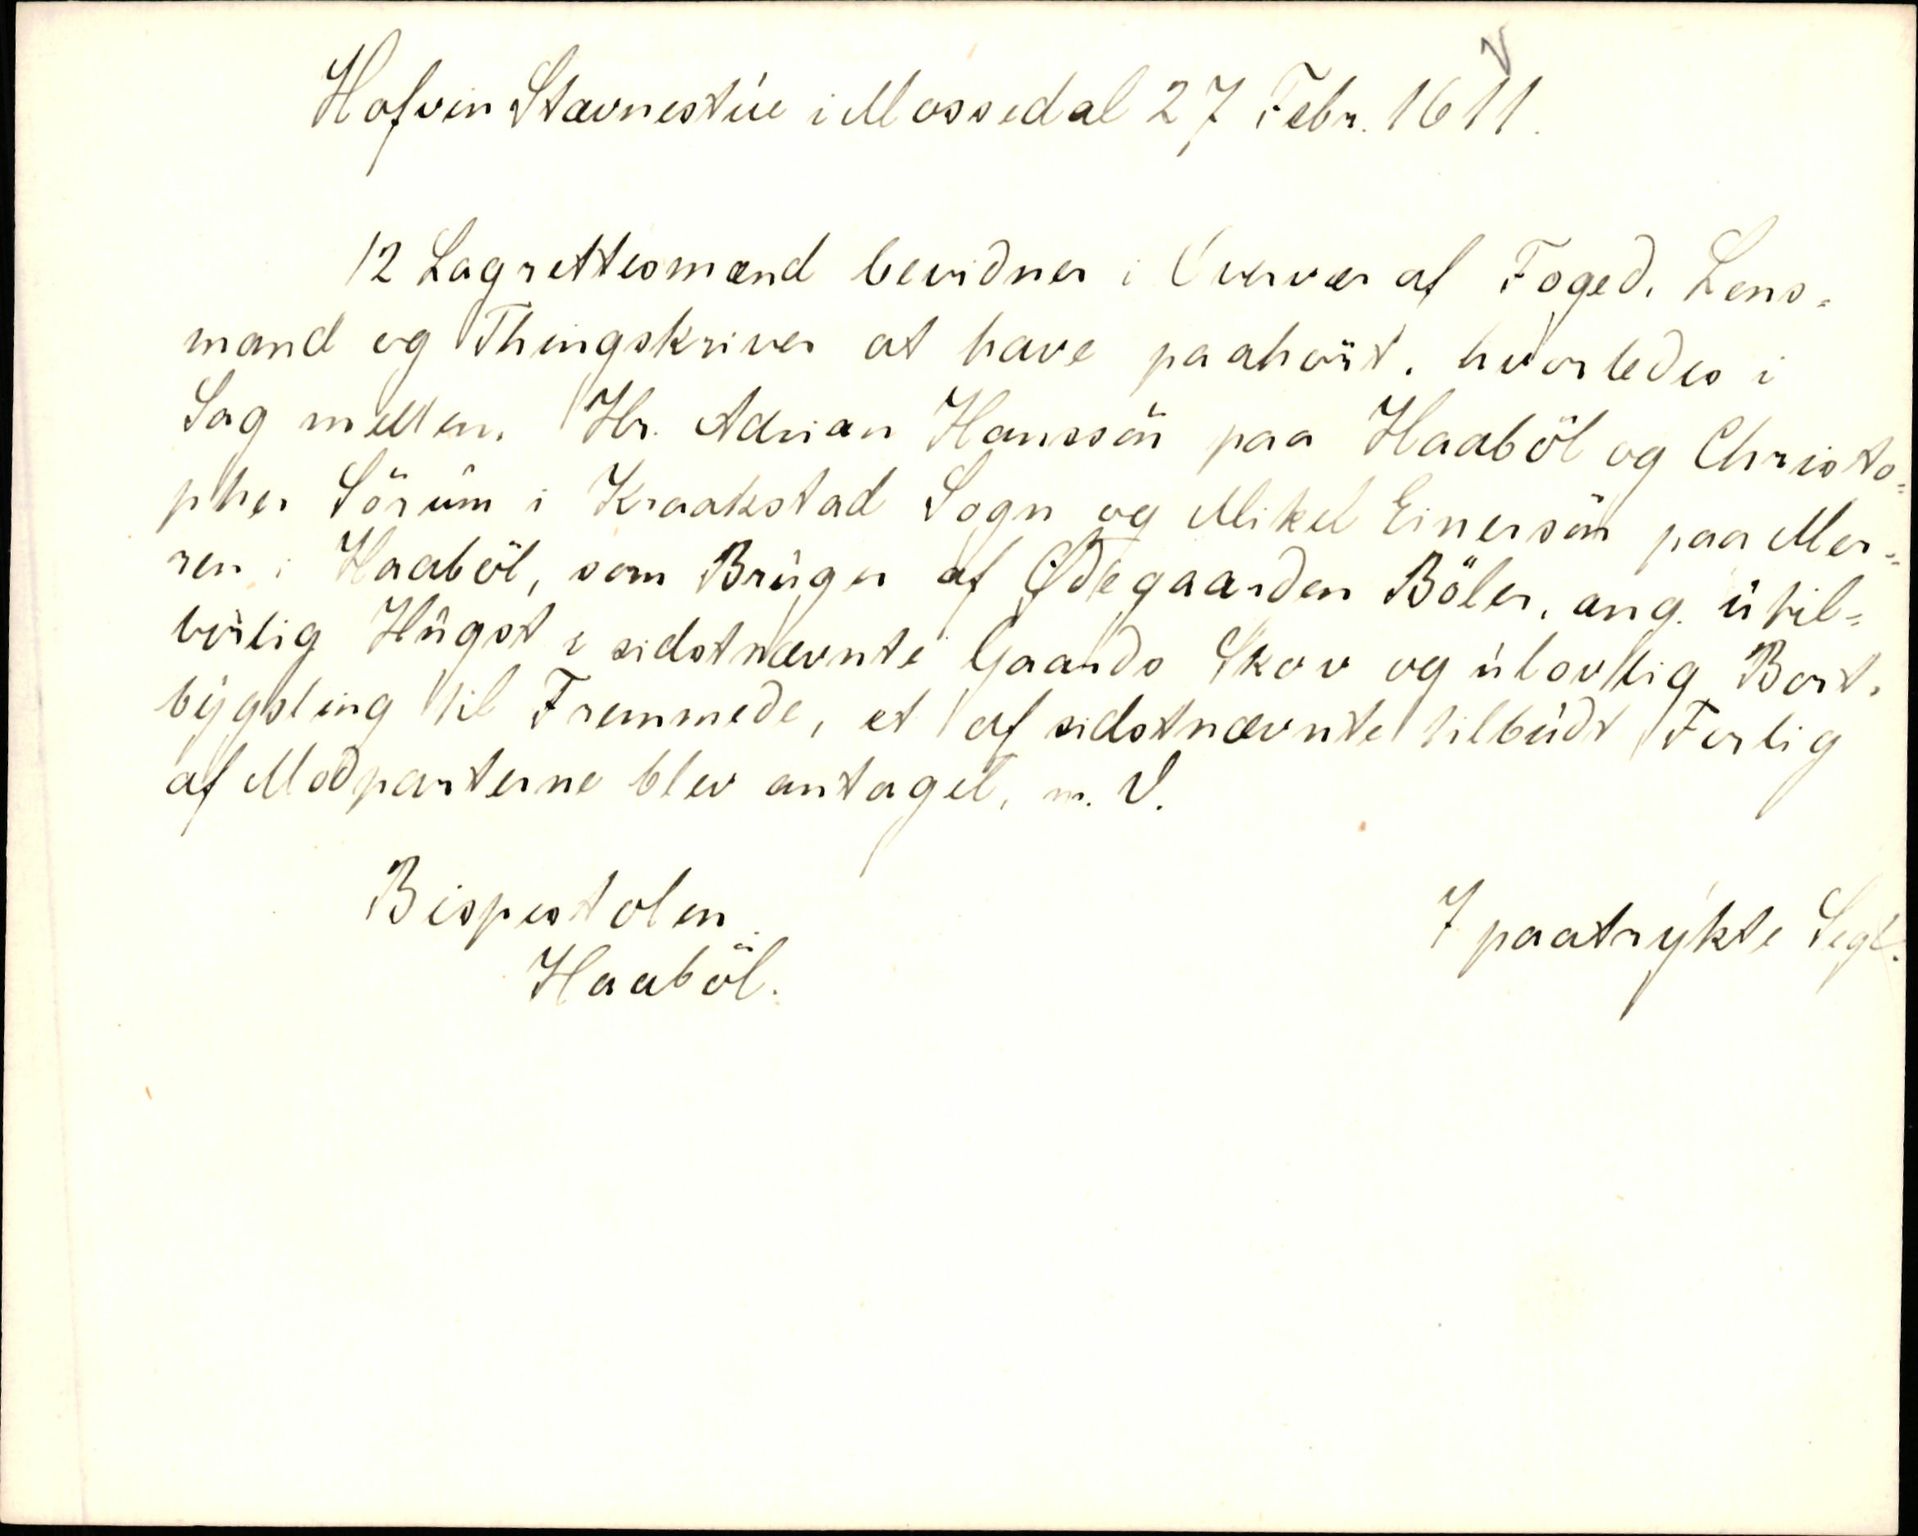 Hofvin Stævnestue i Mossedal 27 Febr. 1611.
12 Lagrettesmænd bevidner i Overvær af Foged, Lens-
mand og Thingskriver at have paahört, hvorledes i
Sag mellem Hr. Adrian Hanssön paa Haaböl og Christo-
pher Sörum i Kraakstad Sogn og Mikel Einersön paa Mer-
ren i Haaböl, som Bruger af Ødegaarden Böler, ang. util-
börlig Hugst i sidstnævnte Gaards Skov og ulovlig Bort-
bygsling til Fremmede, et af sidstnævnte tilbudt Forlig
af Modparterne blev antaget, m. V.
Bispestolen
7 paatrykte Segl.
Haaböl.